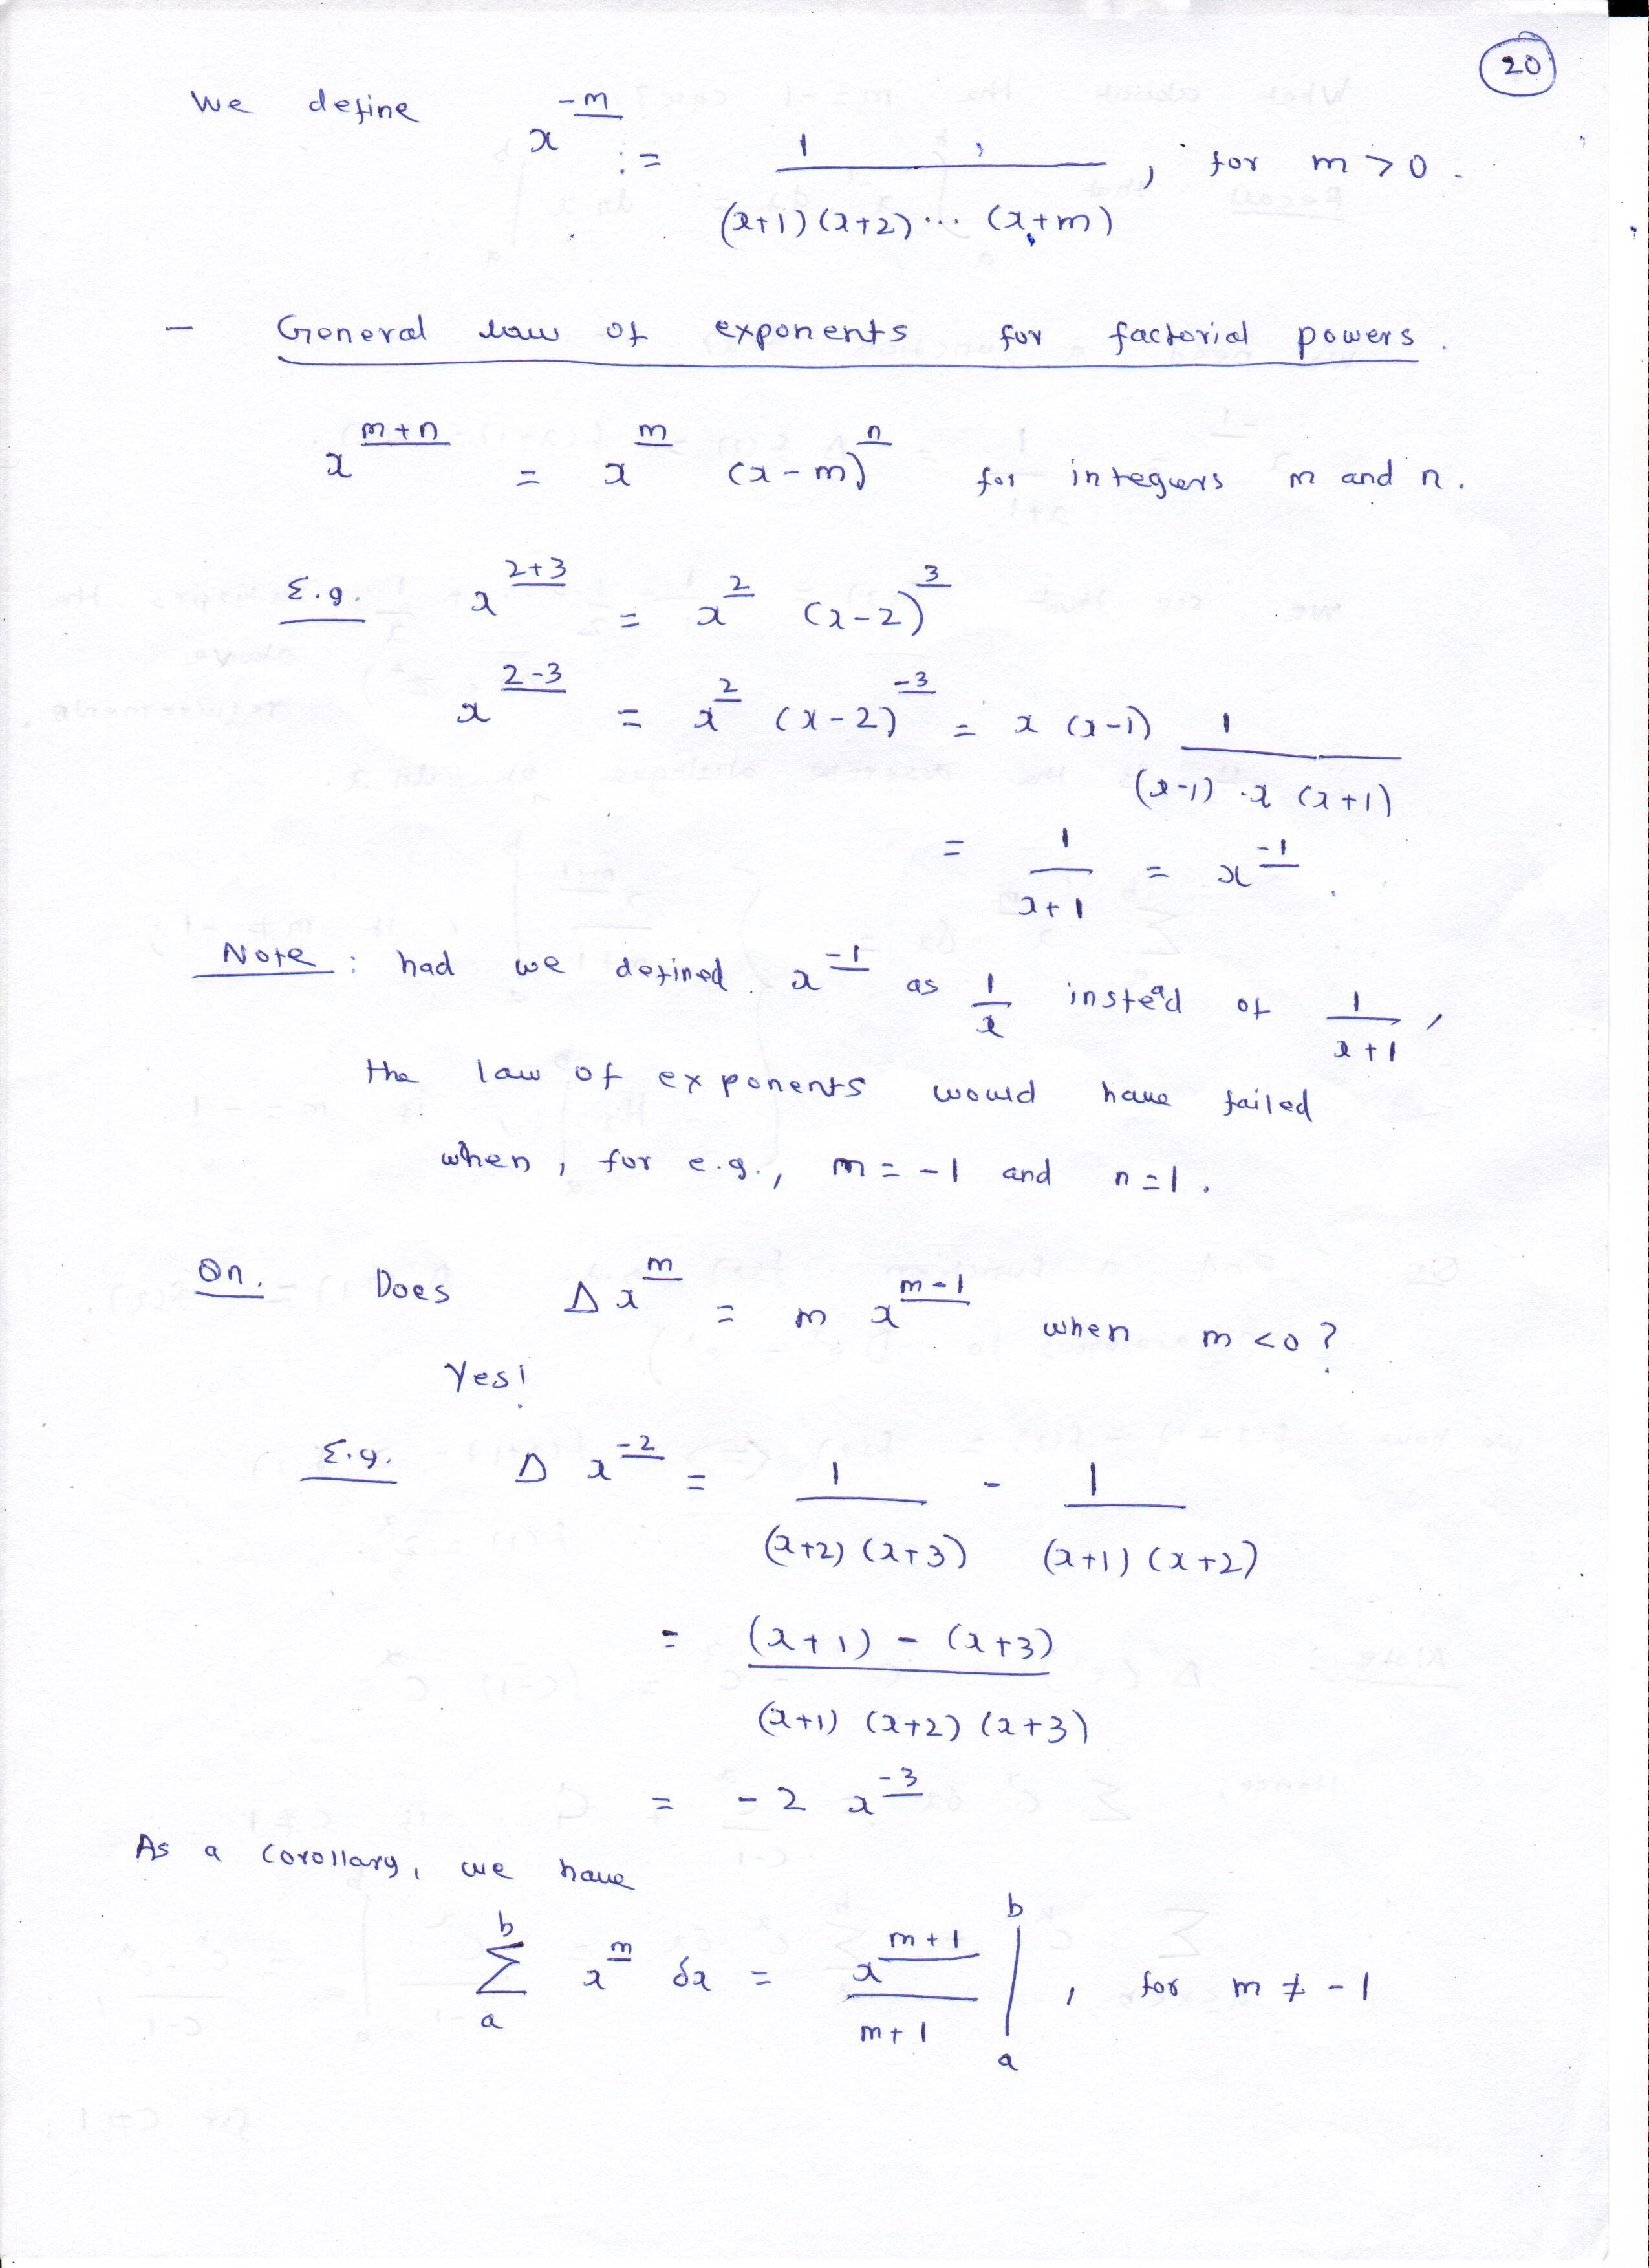 20
We define x^{\underline{-m}} := \frac{1}{(x+1)(x+2)\cdots(x+m)}, for m > 0.
— General law of exponents for factorial powers.
x^{\underline{m+n}} = x^{\underline{m}} (x-m)^{\underline{n}} for integers m and n.
E.g. x^{\underline{2+3}} = x^{\underline{2}} (x-2)^{\underline{3}}
x^{\underline{2-3}} = x^{\underline{2}} (x-2)^{\underline{-3}} = x (x-1) \frac{1}{(x-1) \cdot x (x+1)}
= \frac{1}{x+1} = x^{\underline{-1}}.
Note: had we defined x^{\underline{-1}} as \frac{1}{x} instead of \frac{1}{x+1},
the law of exponents would have failed
when, for e.g., m = -1 and n = 1.
Qn. Does Δ x^{\underline{m}} = m x^{\underline{m-1}} when m < 0?
Yes!
E.g. Δ x^{\underline{-2}} = \frac{1}{(x+2)(x+3)} - \frac{1}{(x+1)(x+2)}
= \frac{(x+1) - (x+3)}{(x+1)(x+2)(x+3)}
= -2 x^{\underline{-3}}
As a corollary, we have
\sum_{a}^{b} x^{\underline{m}} δx = \frac{x^{\underline{m+1}}}{m+1} \Big|_{a}^{b}, for m ≠ -1